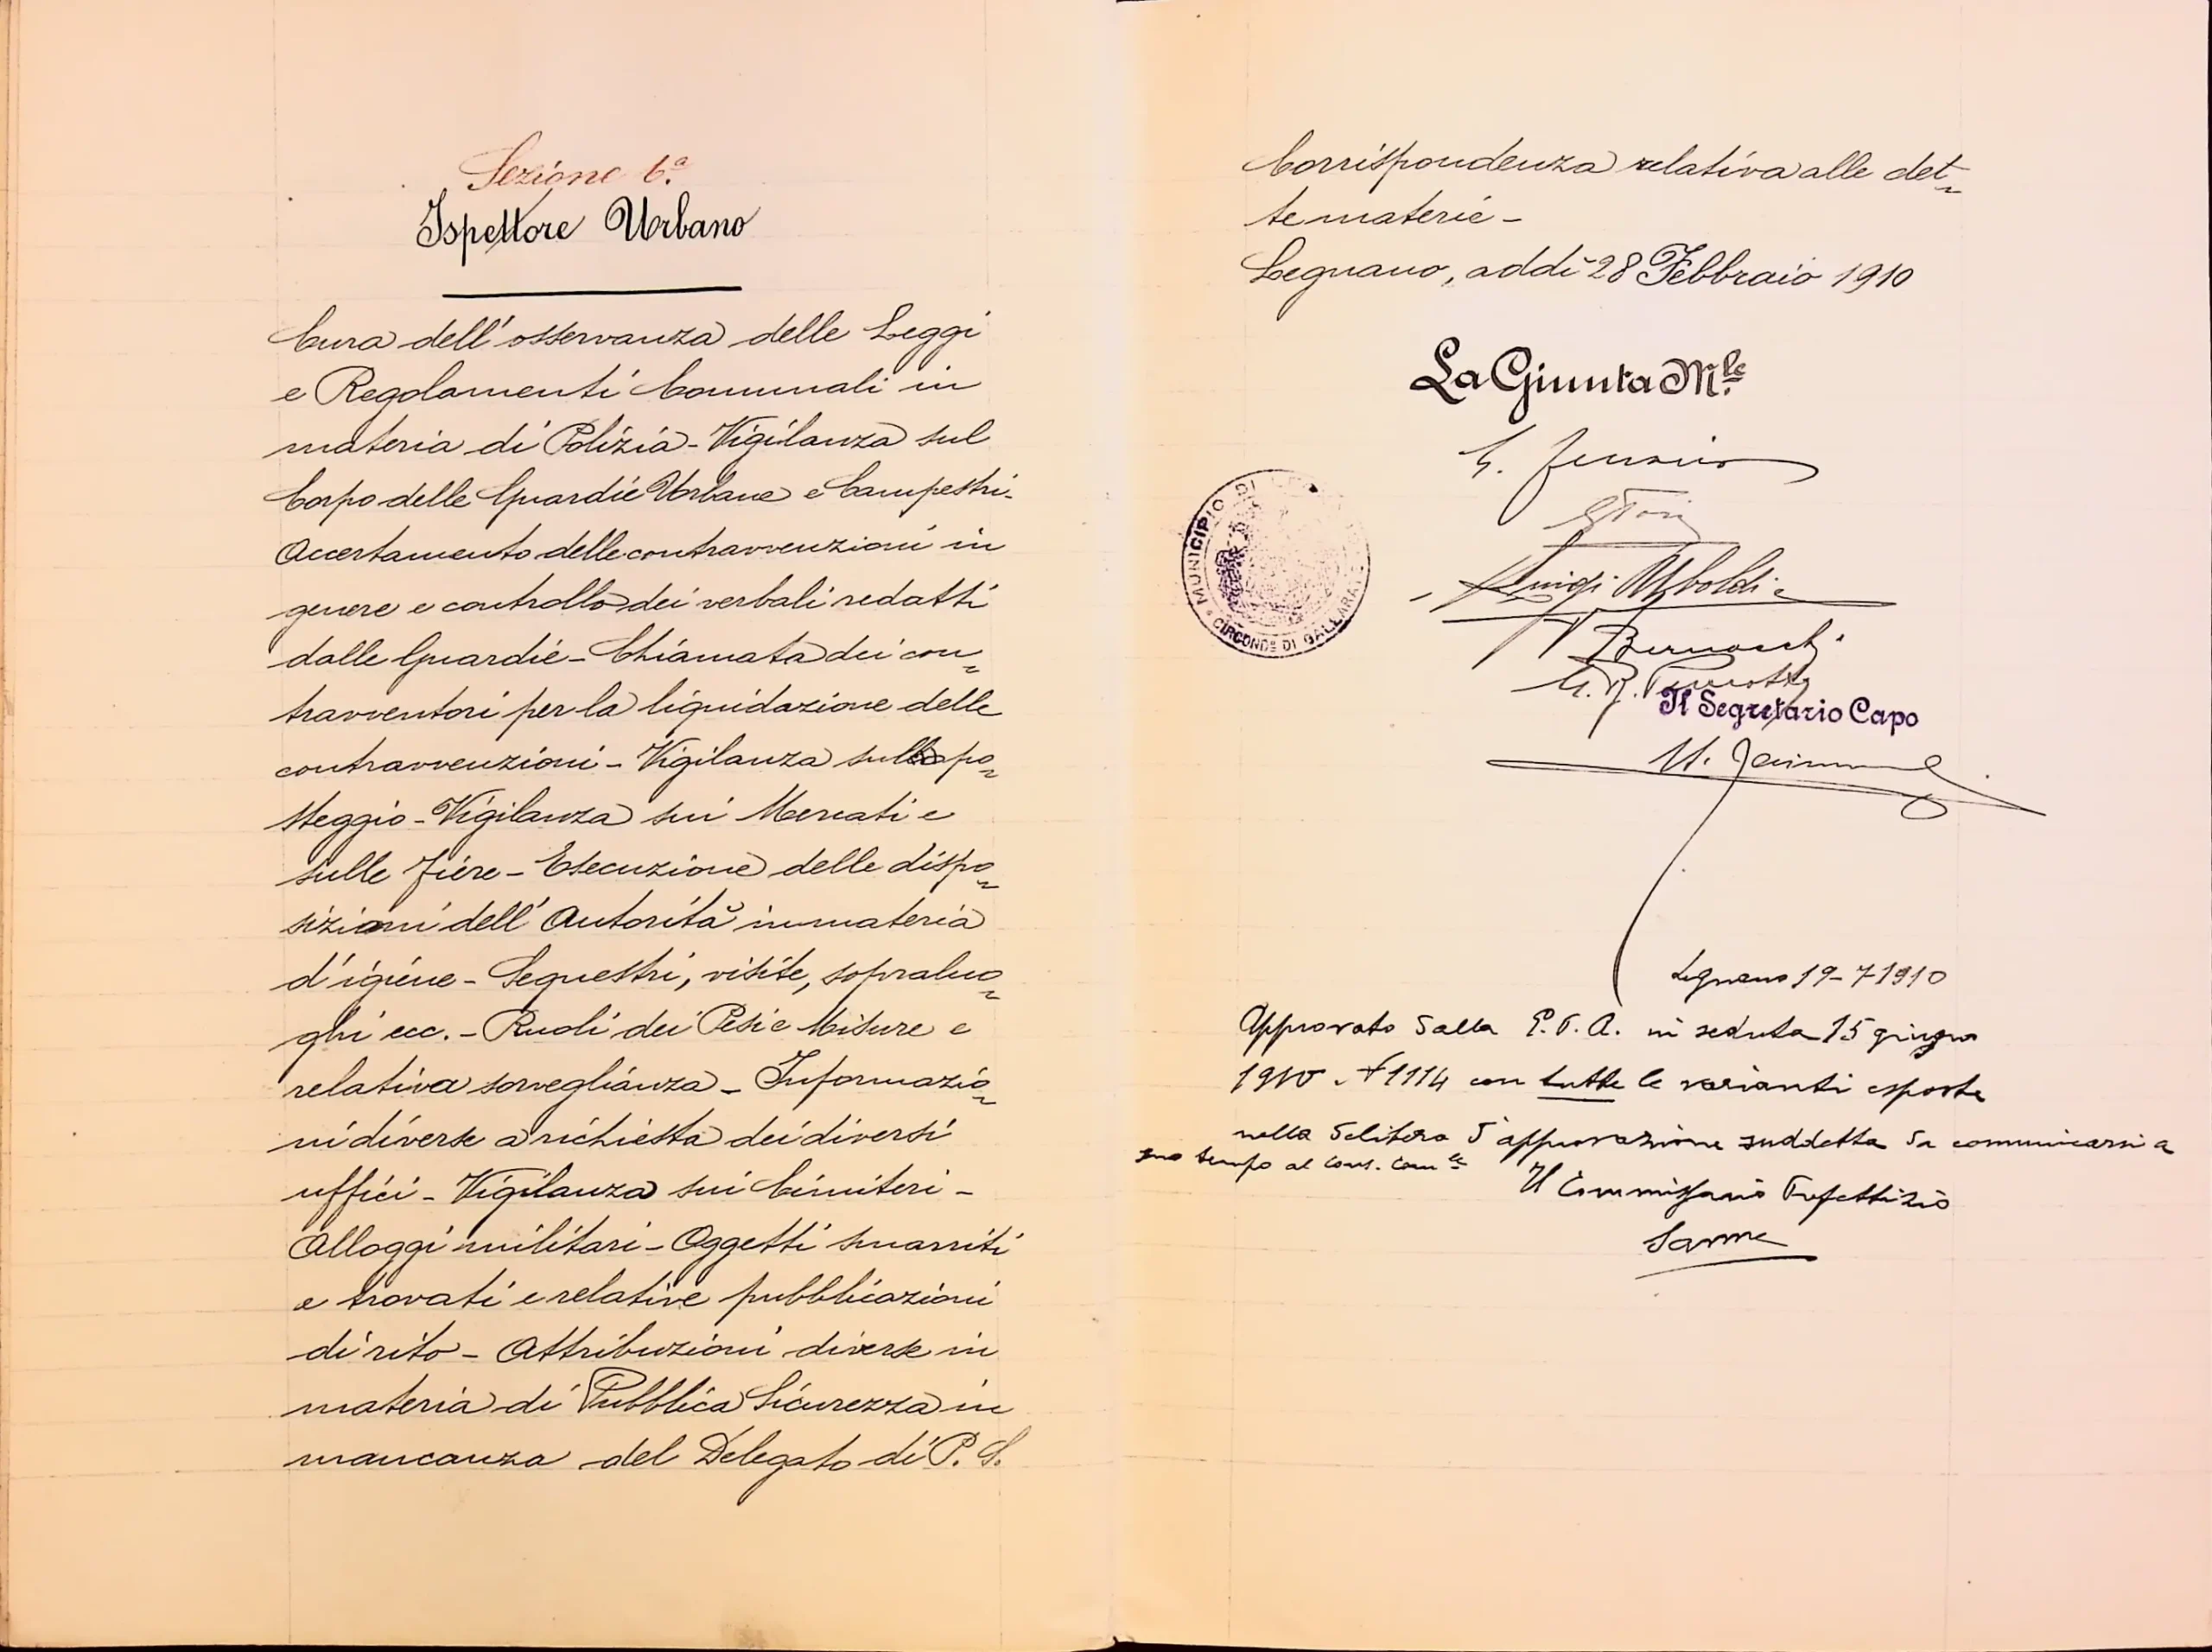 Sezione 6.ª
Ispettore Urbano
Cura dell'osservanza delle Leggi
e Regolamenti Comunali in
materia di Polizia - Vigilanza sul
Corpo delle Guardie Urbane e Campestri -
Accertamento delle contravvenzioni in
genere e controllo dei verbali redatti
dalle Guardie - Chiamata dei con=
travventori per la liquidazione delle
contravvenzioni - Vigilanza sullo po=
steggio - Vigilanza sui Mercati e
sulle fiere - Esecuzione delle dispo=
sizioni dell'Autorità in materia
d'igiene - Sequestri, visite, sopraluo=
ghi ecc. - Ruoli dei Pesi e Misure e
relativa sorveglianza - Informazio=
ni diverse a richiesta dei diversi
uffici - Vigilanza sui Cimiteri -
Alloggi militari - Oggetti smarriti
e trovati e relative pubblicazioni
di rito - Attribuzioni diverse in
materia di Pubblica Sicurezza in
mancanza del Delegato di P. S.
Corrispondenza relativa alle det=
te materie -
Legnano, addì 28 Febbraio 1910
La Giunta M.le
Luigi Uboldi
Bernocchi
Il Segretario Capo
MUNICIPIO DI
CIRCOND.º DI GALLARATE
Legnano 19-7-1910
Approvato dalla G. P. A. in seduta 15 giugno
1910 N 1114 con tutte le varianti esposte
nella delibera d'approvazione suddetta da comunicarsi a
suo tempo al Cons. Com.le
Il Commissario Prefettizio